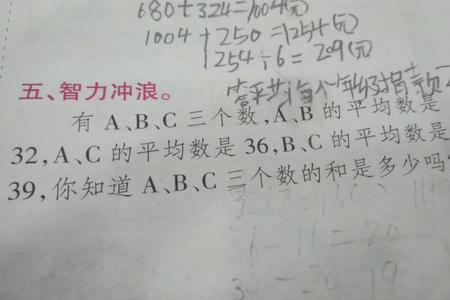 680+324=1004(元)
1004+250=1254(元)
1254÷6=209(元)
五、智力冲浪。
有 A、B、C 三个数,A、B 的平均数是
32,A、C 的平均数是 36,B、C 的平均数是
39,你知道 A、B、C 三个数的和是多少吗?